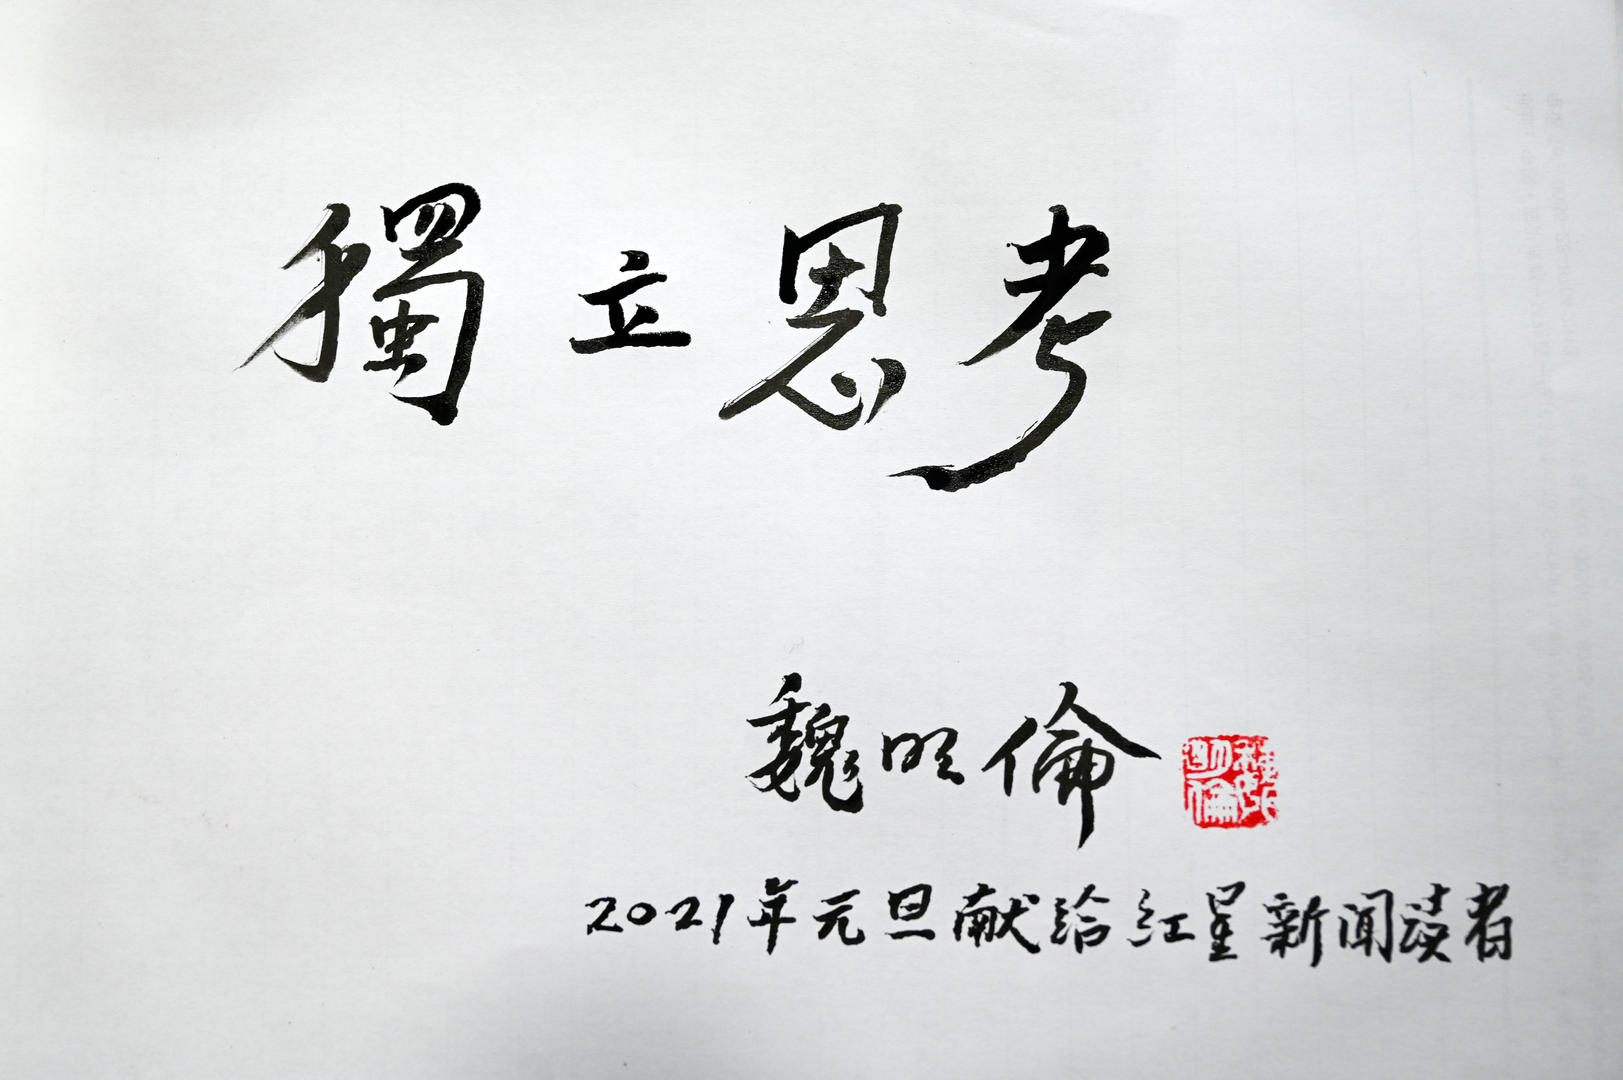 獨立思考
魏明倫
魏明倫
2021年元旦献给红星新闻读者